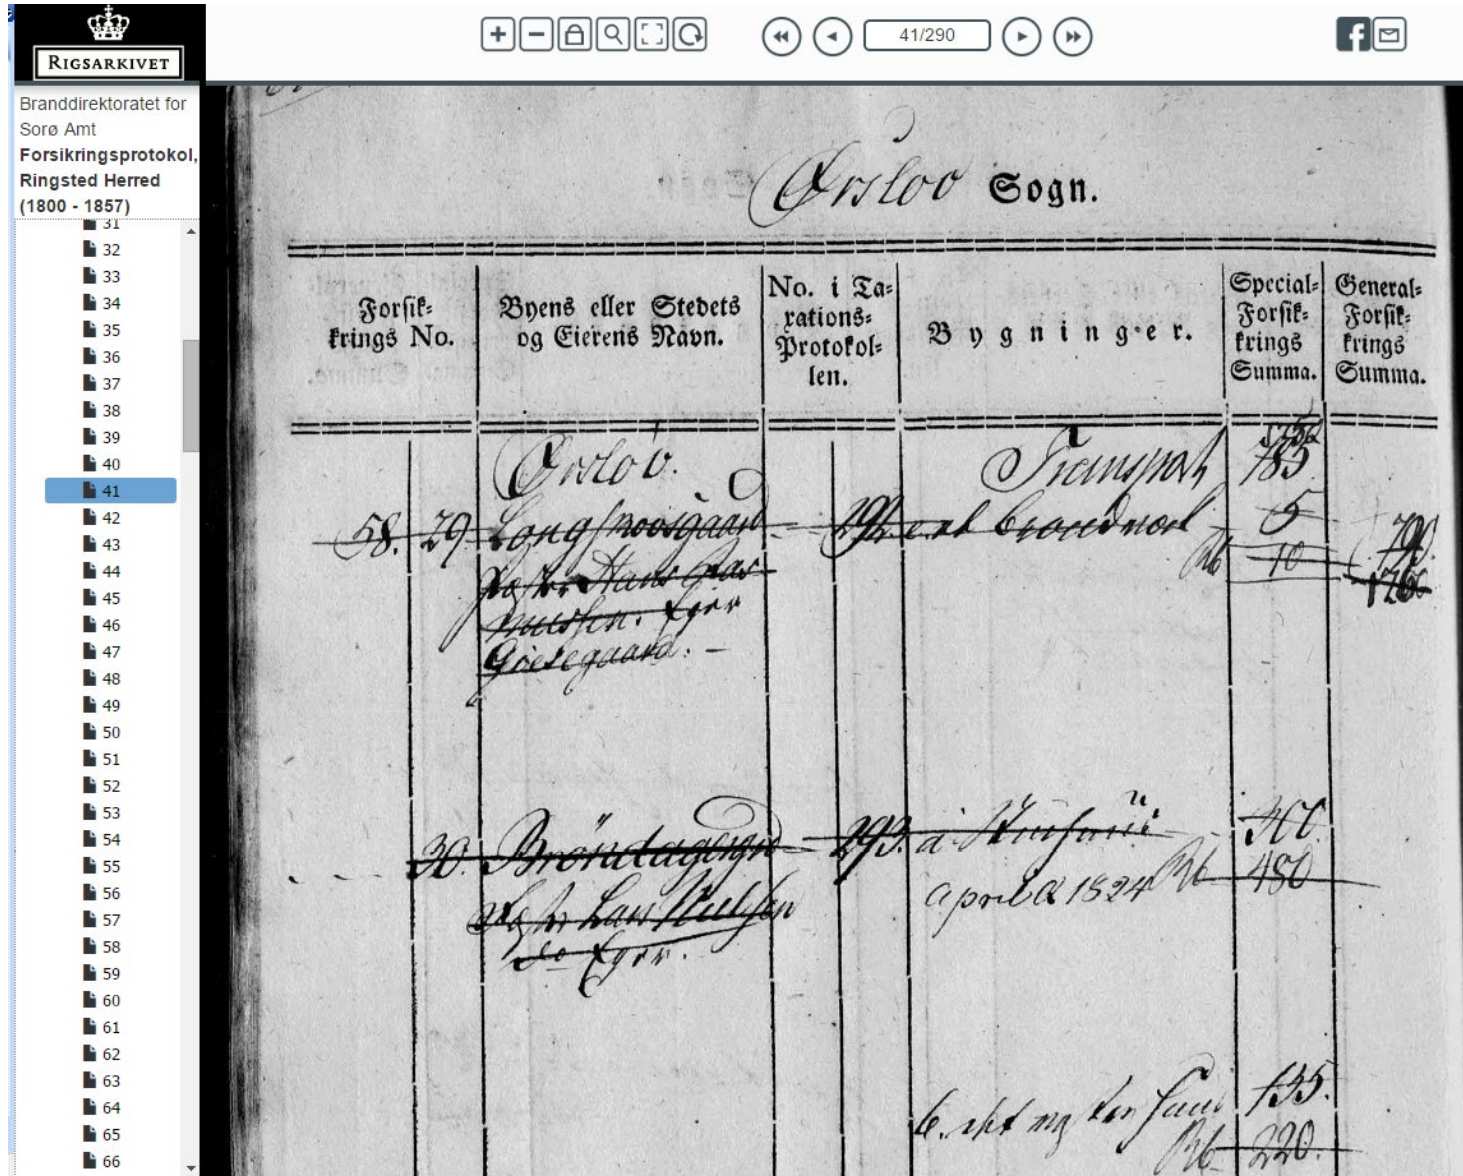 RIGSARKIVET
41/290
Branddirektoratet for
Sorø Amt
Forsikringsprotokol,
Ringsted Herred
(1800 - 1857)
31
32
33
34
35
36
37
38
39
40
41
42
43
44
45
46
47
48
49
50
51
52
53
54
55
56
57
58
59
60
61
62
63
64
65
66
Ørsløv Sogn.
Forsik-
krings No.
Byens eller Stedets
og Eierens Navn.
No. i Ta-
xations-
Protokol-
len.
Bygninger.
Special-
Forsik-
krings
Summa.
General-
Forsik-
krings
Summa.
Ørsløv. Transport 785
58. 29. Langsmoosgaard 292. 5 790.
Rb 10 1766
Fæster Hans Ras
mussen. Ejer
Giesegaard. -
30. 293. a. Stuehuus 300
April A 1824 Rb 480
Fæster Lars Nielsen
do Ejer.
b. 135.
Rb 220.